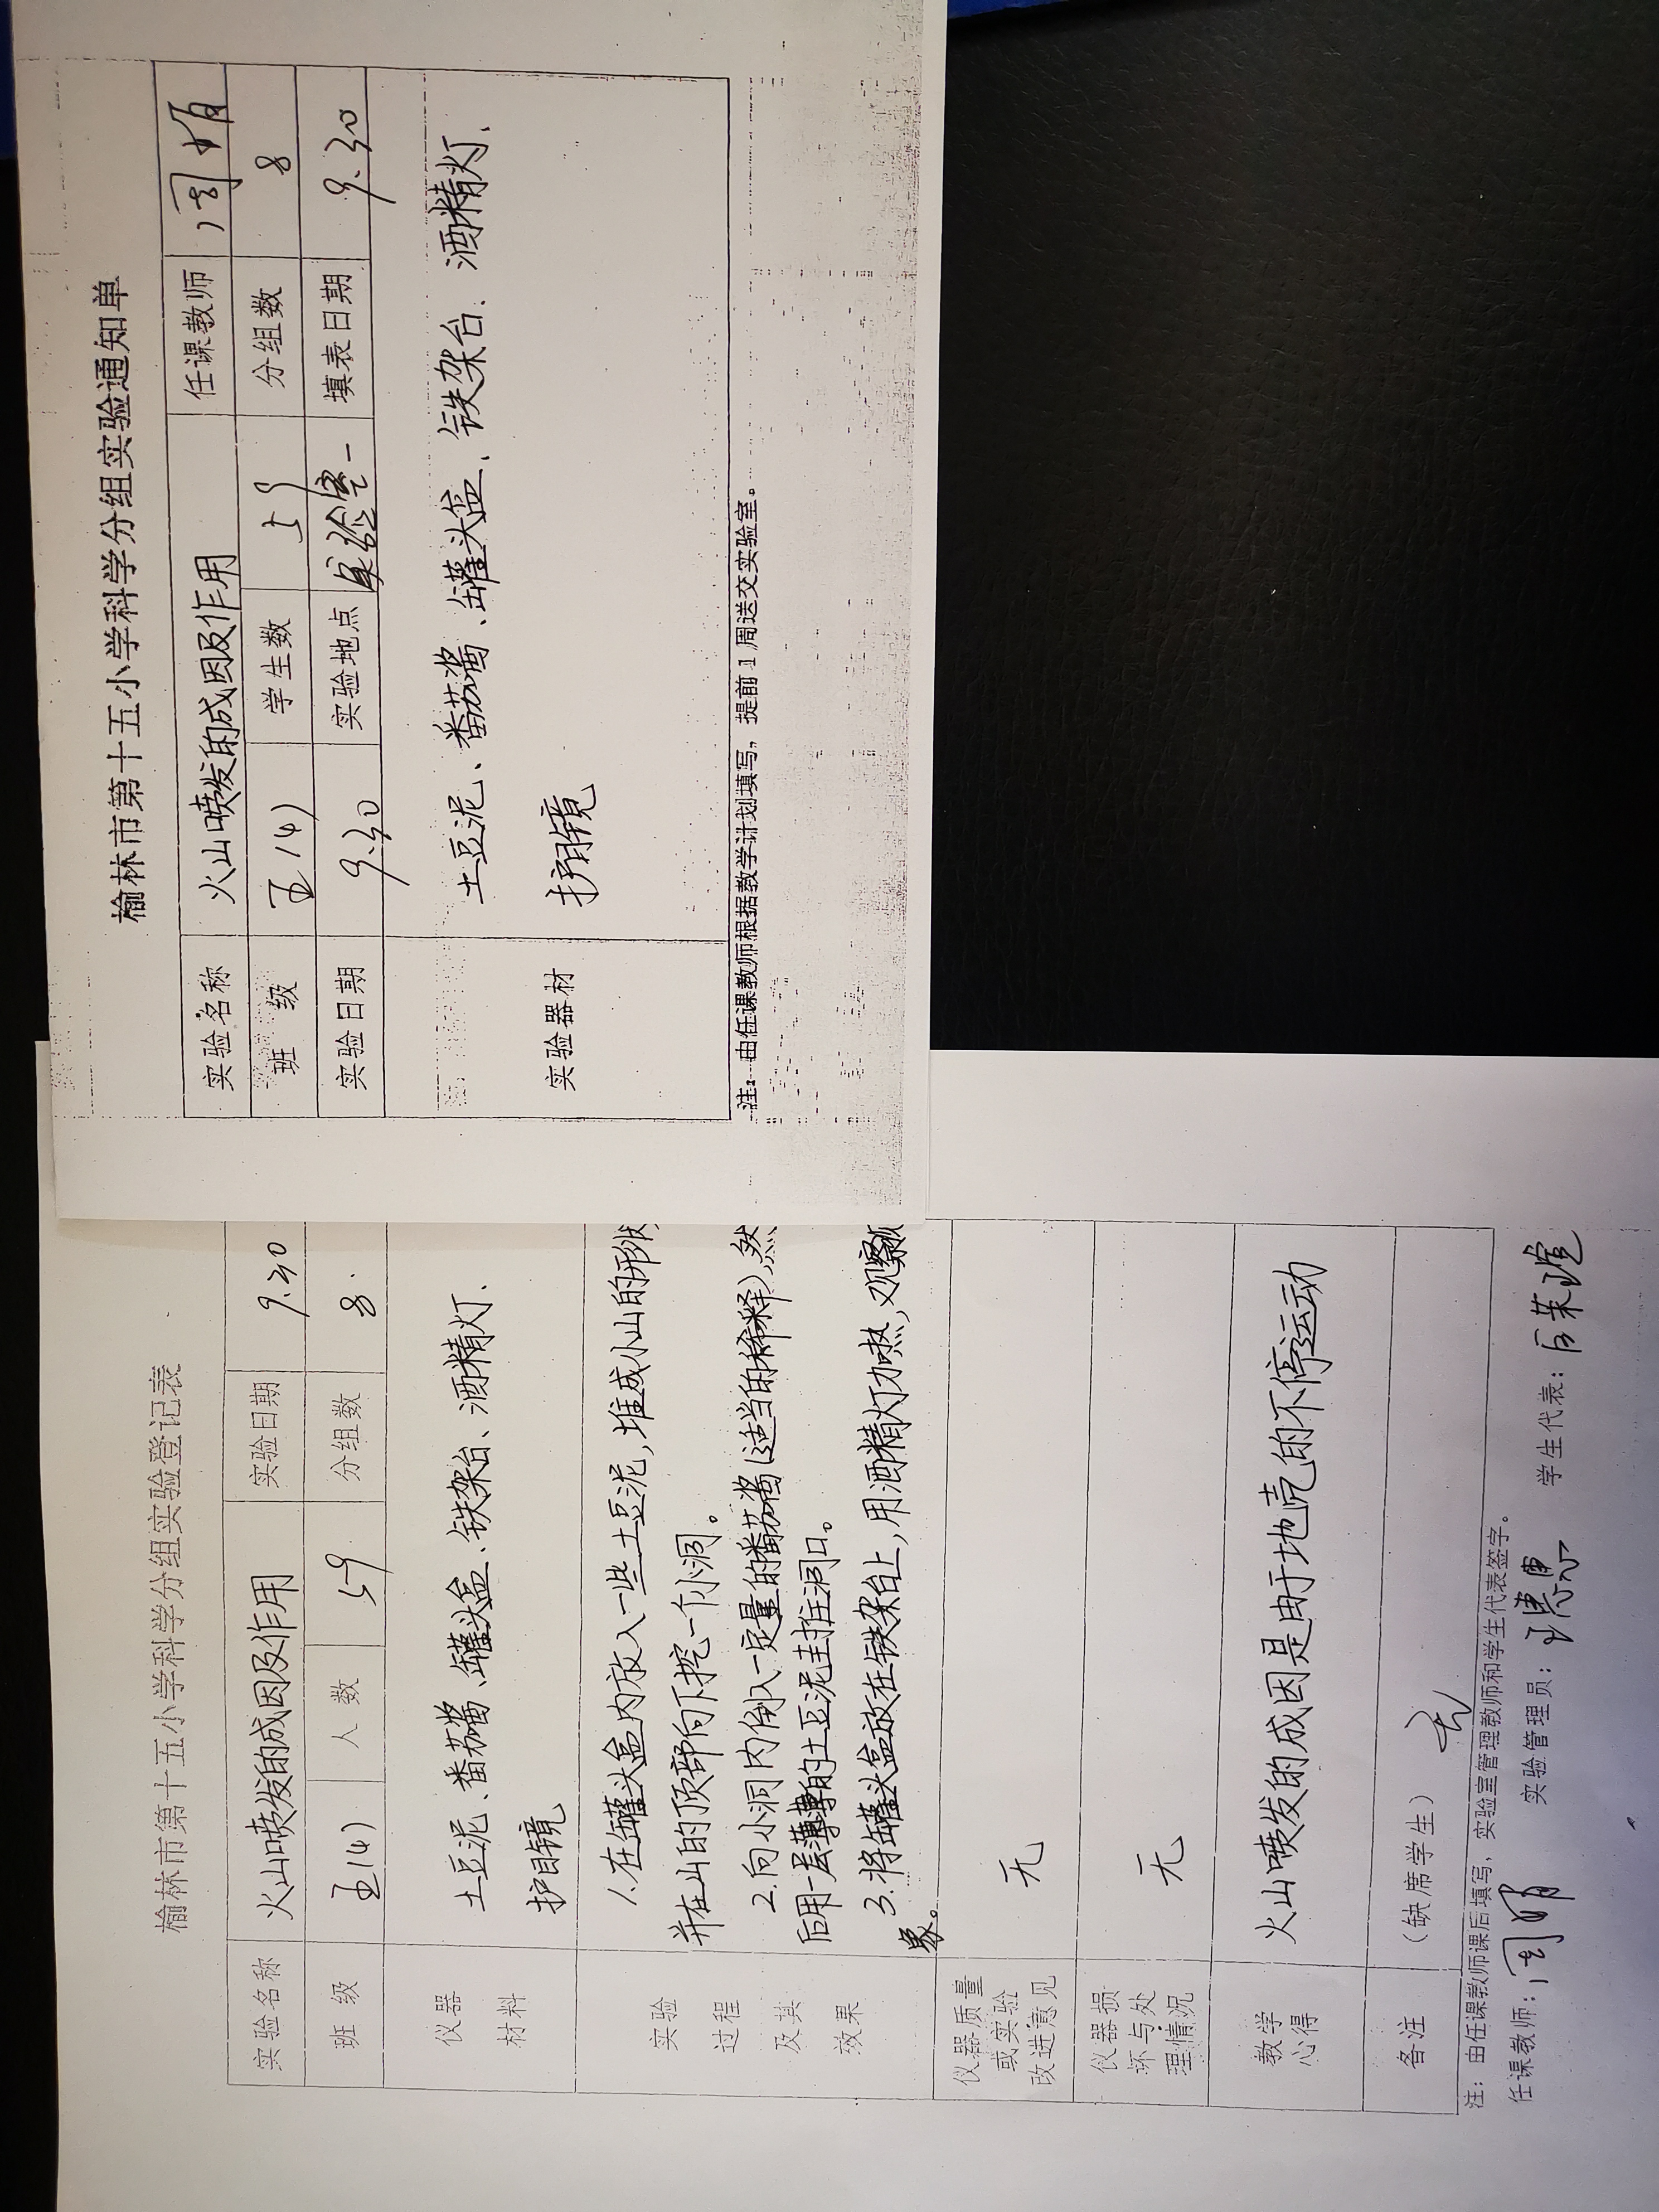 榆林市第十五小学科学分组实验通知单
实验名称 火山喷发的成因及作用 任课教师 周娟
班 级 五(4) 学生数 59 分组数 8
实验日期 9.30 实验地点 实验室一 填表日期 9.30
实验器材 土豆泥、番茄酱、罐头盒、铁架台、酒精灯、
护目镜
注：由任课教师根据教学计划填写，提前1周送交实验室。
榆林市第十五小学科学分组实验登记表
实验名称 火山喷发的成因及作用 实验日期 9.30
班 级 五(4) 人 数 59 分组数 8.
仪器 材料 土豆泥、番茄酱、罐头盒、铁架台、酒精灯、
护目镜
实验 过程 及其 效果
1.在罐头盒内放入一些土豆泥,堆成小山的形状
并在山的顶部向下挖一个小洞。
2.向小洞内倒入一定量的番茄酱(适当的稀释),然
后用一层薄薄的土豆泥封住洞口。
3.将罐头盒放在铁架台上,用酒精灯加热,观察现
象。
仪器质量 或实验 改进意见 无
仪器损 坏与处 理情况 无
教学 心得 火山喷发的成因是由于地壳的不停运动
各注 (缺席学生) 无
注：由任课教师课后填写，实验室管理教师和学生代表签字。
任课教师：周娟 实验管理员： 学生代表：